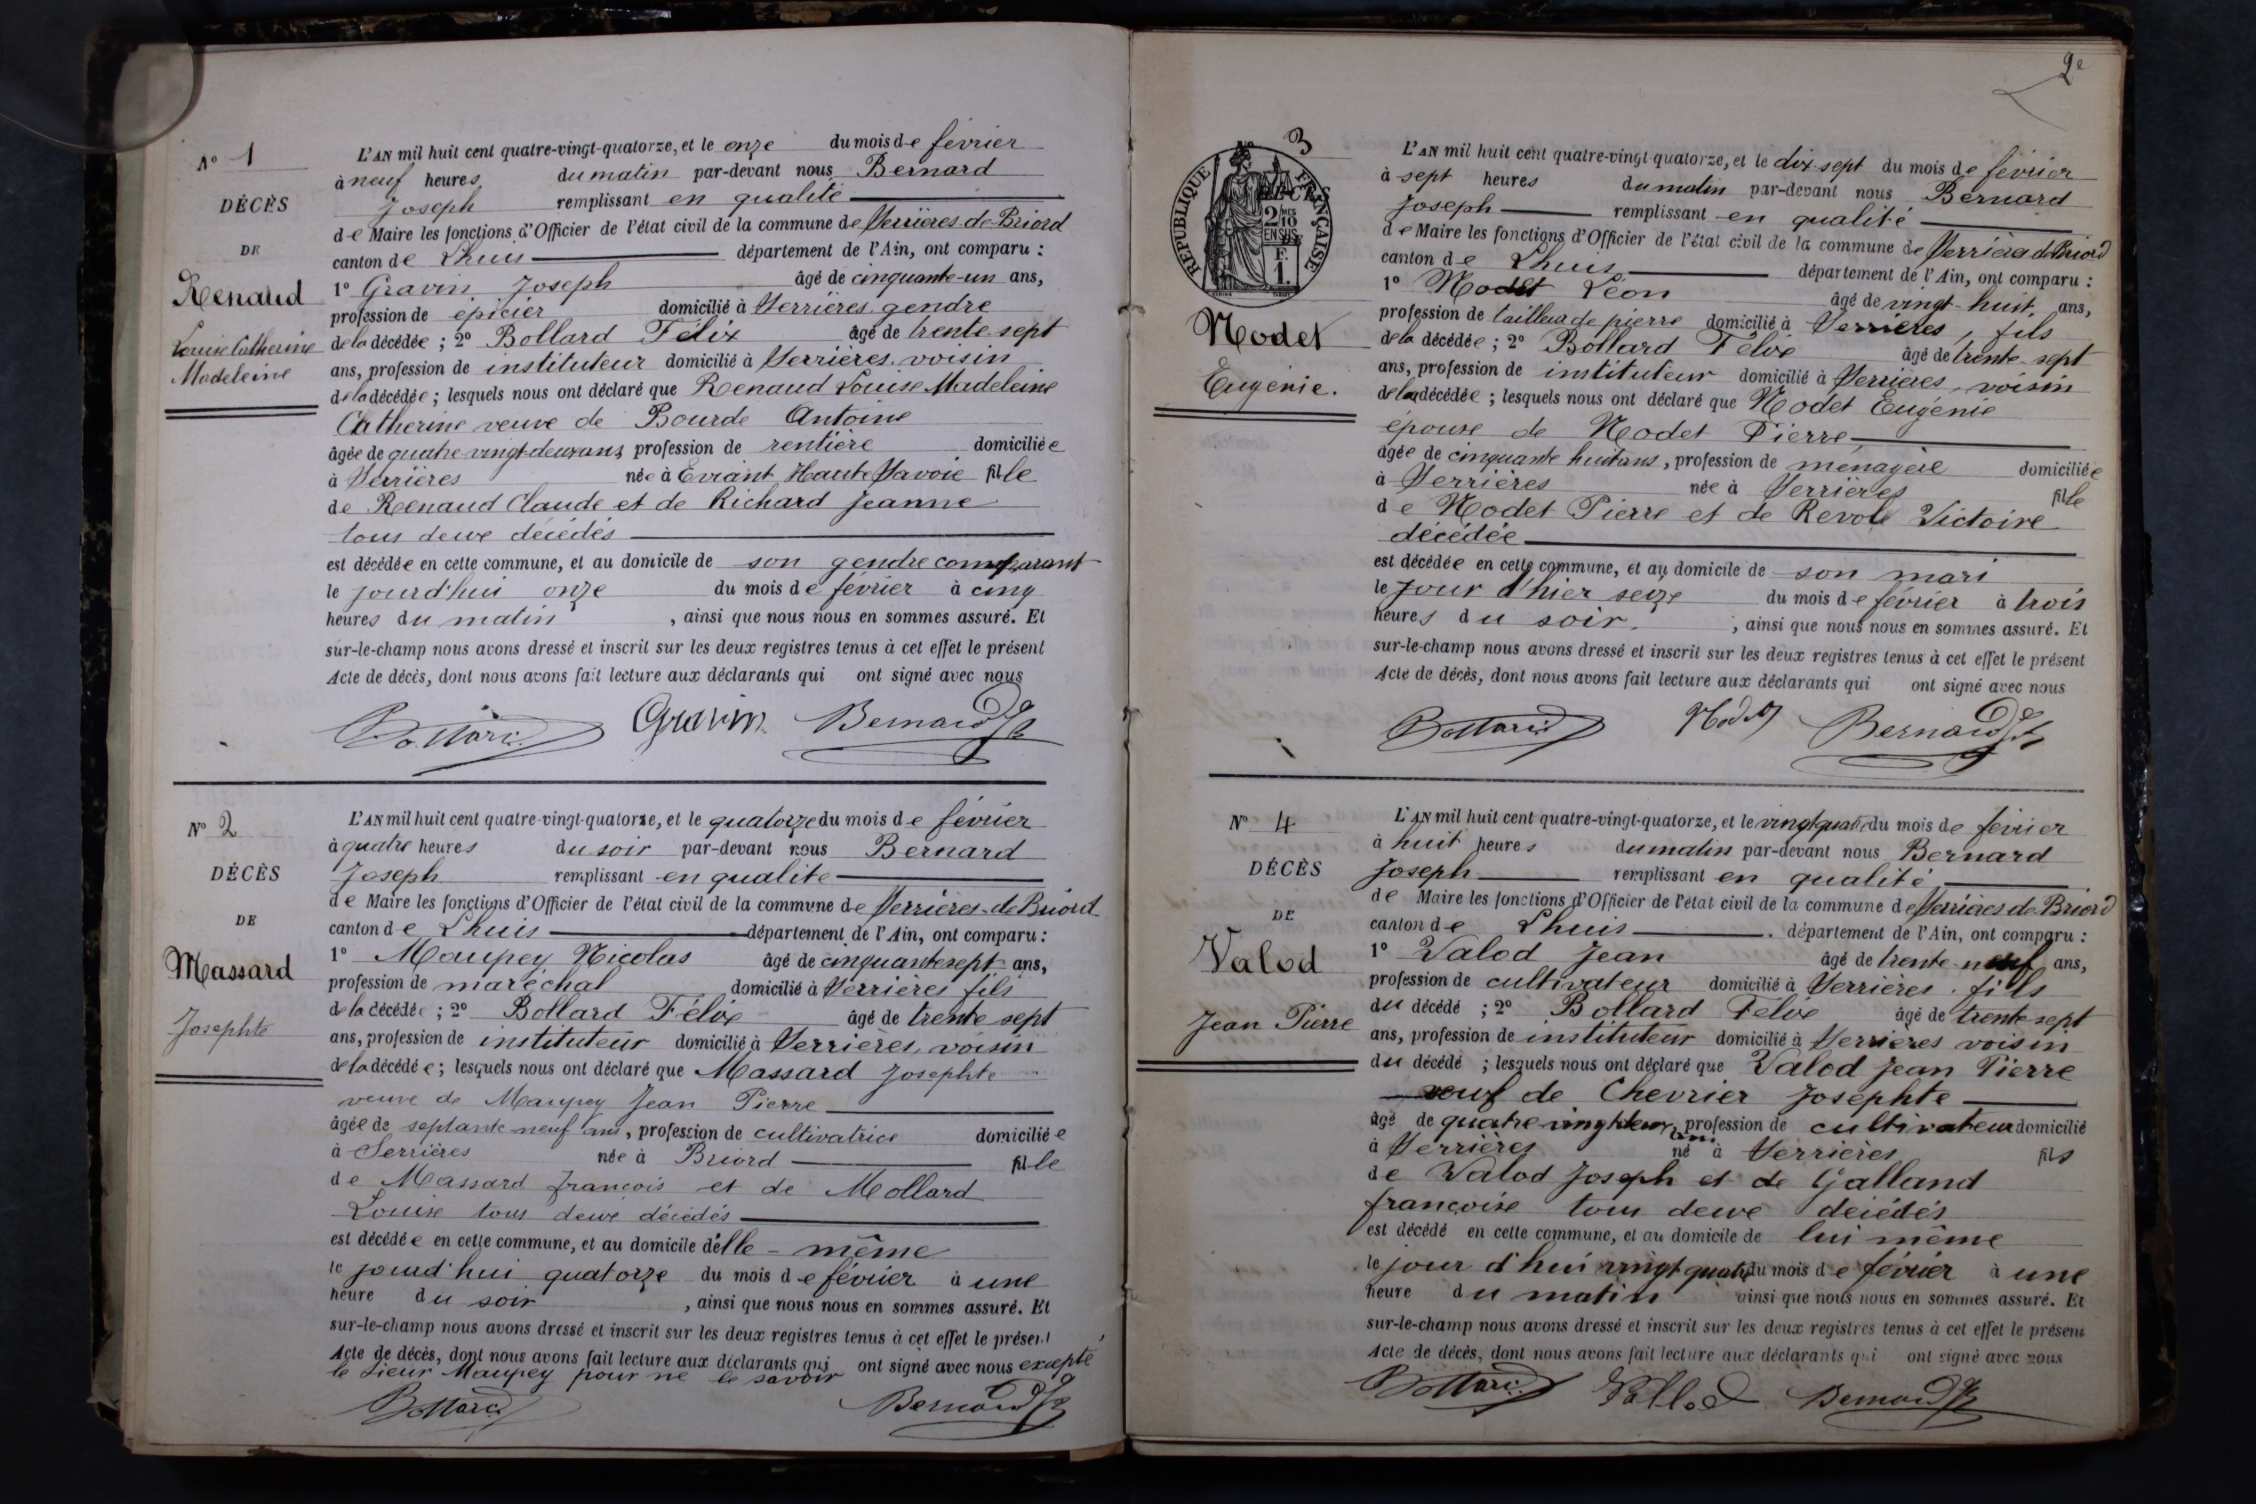 N° 1
DÉCÈS
DE
Renaud
Louise Catherine
Madeleine
L'AN mil huit cent quatre-vingt-quatorze, et le onze du mois de février
à neuf heures du matin par-devant nous Bernard
Joseph remplissant en qualité
de Maire les fonctions d'Officier de l'état civil de la commune de Serrières-de-Briord
canton de Lhuis département de l'Ain, ont comparu :
1° Gravin Joseph âgé de cinquante-un ans,
profession de épicier domicilié à Serrières, gendre
de la décédée ; 2° Bollard Félix âgé de trente-sept
ans, profession de instituteur domicilié à Serrières, voisin
de la décédée ; lesquels nous ont déclaré que Renaud Louise Madeleine
Catherine veuve de Bourde Antoine
âgée de quatre-vingt-deux ans, profession de rentière domiciliée
à Serrières née à Eviant Haute Savoie fille
de Renaud Claude et de Richard Jeanne
tous deux décédés
est décédée en cette commune, et au domicile de son gendre comparant
le jourd'hui onze du mois de février à cinq
heures du matin , ainsi que nous nous en sommes assuré. Et
sur-le-champ nous avons dressé et inscrit sur les deux registres tenus à cet effet le présent
Acte de décès, dont nous avons fait lecture aux déclarants qui ont signé avec nous
Bollard Gravin Bernard Jh
N° 2
DÉCÈS
DE
Massard
Josephte
L'AN mil huit cent quatre-vingt-quatorze, et le quatorze du mois de février
à quatre heures du soir par-devant nous Bernard
Joseph remplissant en qualité
de Maire les fonctions d'Officier de l'état civil de la commune de Serrières-de-Briord
canton de Lhuis département de l'Ain, ont comparu :
1° Maupey Nicolas âgé de cinquante sept ans,
profession de maréchal domicilié à Serrières fils
de la décédée ; 2° Bollard Félix âgé de trente sept
ans, profession de instituteur domicilié à Serrières, voisin
de la décédée ; lesquels nous ont déclaré que Massard Josephte
veuve de Maupey Jean Pierre
âgée de septante neuf ans, profession de cultivatrice domiciliée
à Serrières née à Briord fille
de Massard François et de Mollard
Louise tous deux décédés
est décédée en cette commune, et au domicile d'elle-même
le jourd'hui quatorze du mois de février à une
heure du soir , ainsi que nous nous en sommes assuré. Et
sur-le-champ nous avons dressé et inscrit sur les deux registres tenus à cet effet le présent
Acte de décès, dont nous avons fait lecture aux déclarants qui ont signé avec nous excepté
le sieur Maupey pour ne le savoir
Bollard Bernard Jh
2e
N° 3
RÉPUBLIQUE FRANÇAISE
2 10
EN SUS
F.
1.
Nodet
Eugénie.
L'AN mil huit cent quatre-vingt-quatorze, et le dix-sept du mois de février
à sept heures du matin par-devant nous Bernard
Joseph remplissant en qualité
de Maire les fonctions d'Officier de l'état civil de la commune de Serrières de Briord
canton de Lhuis département de l'Ain, ont comparu :
1° Nodet Léon âgé de vingt-huit ans,
profession de tailleur de pierre domicilié à Serrières, fils
de la décédée ; 2° Bollard Félix âgé de trente-sept
ans, profession de instituteur domicilié à Serrières, voisin
de la décédée ; lesquels nous ont déclaré que Nodet Eugénie
épouse de Nodet Pierre
âgée de cinquante huit ans, profession de ménagère domiciliée
à Serrières née à Serrières fille
de Nodet Pierre et de Revole Victoire
décédée
est décédée en cette commune, et au domicile de son mari
le jour d'hier seize du mois de février à trois
heures du soir. , ainsi que nous nous en sommes assuré. Et
sur-le-champ nous avons dressé et inscrit sur les deux registres tenus à cet effet le présent
Acte de décès, dont nous avons fait lecture aux déclarants qui ont signé avec nous
Bollard Nodet Bernard Jh
N° 4
DÉCÈS
DE
Valod
Jean Pierre
L'AN mil huit cent quatre-vingt-quatorze, et le vingt quatre du mois de février
à huit heures du matin par-devant nous Bernard
Joseph remplissant en qualité
de Maire les fonctions d'Officier de l'état civil de la commune de Serrières de Briord
canton de Lhuis département de l'Ain, ont comparu :
1° Valod Jean âgé de trente-neuf ans,
profession de cultivateur domicilié à Serrières, fils
du décédé ; 2° Bollard Félix âgé de trente sept
ans, profession de instituteur domicilié à Serrières voisin
du décédé ; lesquels nous ont déclaré que Valod Jean Pierre
veuf de Chevrier Josephte
âgé de quatre vingt deux ans, profession de cultivateur domicilié
à Serrières né à Serrières fils
de Valod Joseph et de Galland
françoise tous deux décédés
est décédé en cette commune, et au domicile de lui même
le jour d'hui vingt quatre du mois de février à une
heure du matin ainsi que nous nous en sommes assuré. Et
sur-le-champ nous avons dressé et inscrit sur les deux registres tenus à cet effet le présent
Acte de décès, dont nous avons fait lecture aux déclarants qui ont signé avec nous
Bollard Vallod Bernard Jh